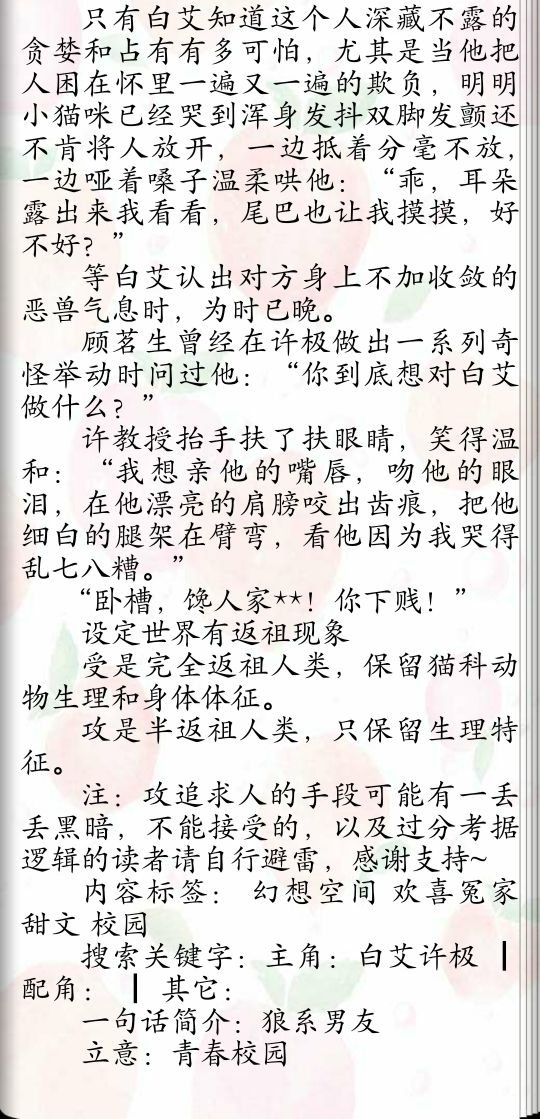 只有白艾知道这个人深藏不露的
贪婪和占有有多可怕，尤其是当他把
人困在怀里一遍又一遍的欺负，明明
小猫咪已经哭到浑身发抖双脚发颤还
不肯将人放开，一边抵着分毫不放，
一边哑着嗓子温柔哄他：“乖，耳朵
露出来我看看，尾巴也让我摸摸，好
不好？”
等白艾认出对方身上不加收敛的
恶兽气息时，为时已晚。
顾茗生曾经在许极做出一系列奇
怪举动时问过他：“你到底想对白艾
做什么？”
许教授抬手扶了扶眼睛，笑得温
和：“我想亲他的嘴唇，吻他的眼
泪，在他漂亮的肩膀咬出齿痕，把他
细白的腿架在臂弯，看他因为我哭得
乱七八糟。”
“卧槽，馋人家**！你下贱！”
设定世界有返祖现象
受是完全返祖人类，保留猫科动
物生理和身体体征。
攻是半返祖人类，只保留生理特
征。
注：攻追求人的手段可能有一丢
丢黑暗，不能接受的，以及过分考据
逻辑的读者请自行避雷，感谢支持~
内容标签： 幻想空间 欢喜冤家
甜文 校园
搜索关键字：主角：白艾许极 ┃
配角： ┃ 其它：
一句话简介：狼系男友
立意：青春校园